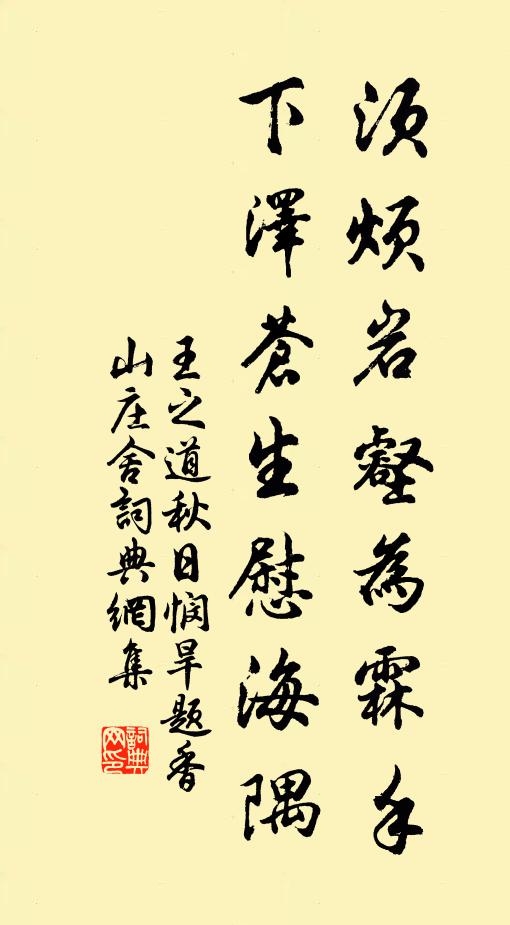 須煩岩壑為霖手
下澤蒼生慰海隅
王之道秋日憫旱題香
山庄舍詞典網集
詞典
网印